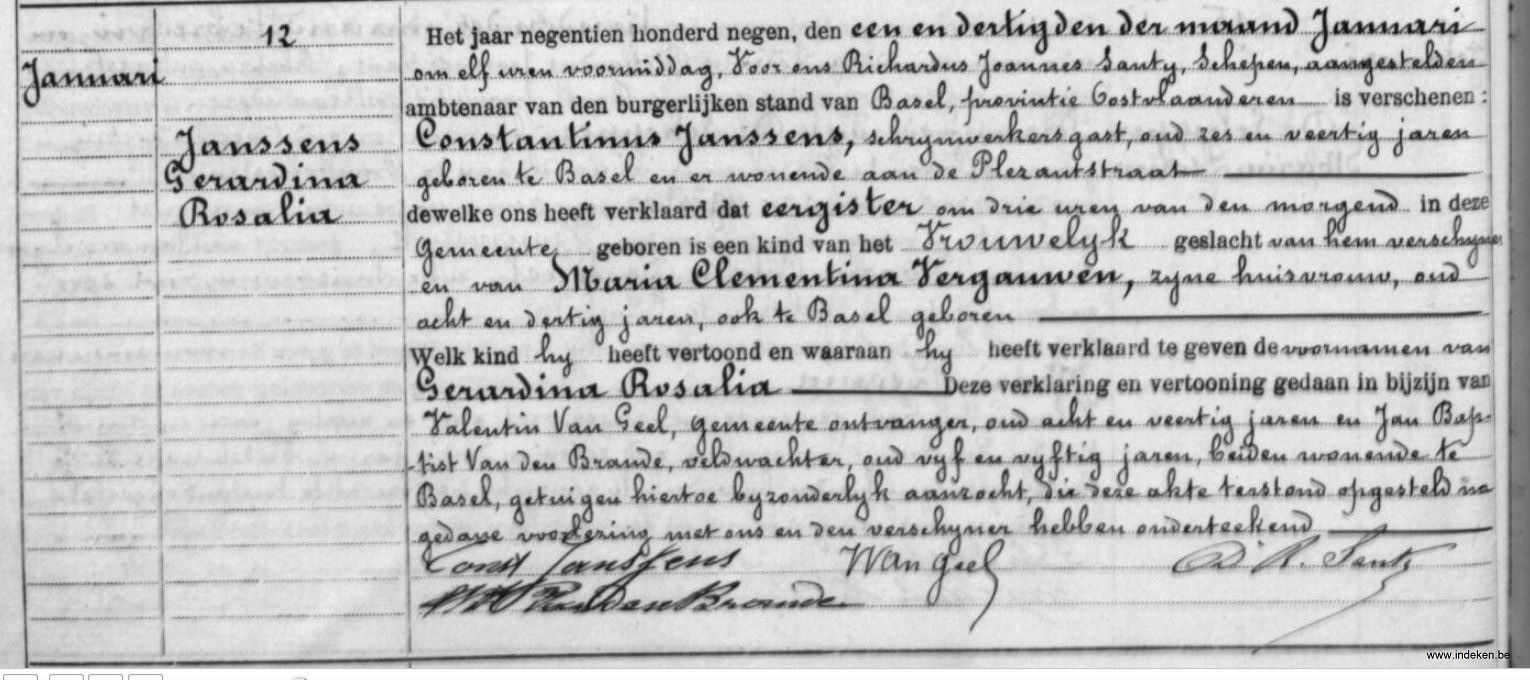 12
Januari
Janssens
Gerardina
Rosalia
Het jaar negentien honderd negen, den een en dertigden der maand Januari
om elf uren voormiddag, Voor ons Richardus Joannes Santy, Schepen, aangestelden
ambtenaar van den burgerlijken stand van Basel, provintie Oostvlaanderen is verschenen :
Constantinus Janssens, schrynwerkersgast, oud zes en veertig jaren
geboren te Basel en er wonende aan de Plezantstraat
dewelke ons heeft verklaard dat eergister om drie uren van den morgend in deze
Gemeente geboren is een kind van het Vrouwelyk geslacht van hem verschyner
en van Maria Clementina Vergauwen, zyne huisvrouw, oud
acht en dertig jaren, ook te Basel geboren
Welk kind hy heeft vertoond en waaraan hy heeft verklaard te geven de voornamen van
Gerardina Rosalia Deze verklaring en vertooning gedaan in bijzijn van
Valentin Van Geel, gemeente ontvanger, oud acht en veertig jaren en Jan Bap-
-tist Van den Brande, veldwachter, oud vyf en vyftig jaren, beiden wonende te
Basel, getuigen hiertoe byzonderlyk aanzocht, die deze akte terstond opgesteld na
gedane voorlezing met ons en den verschyner hebben onderteekend
Const Janssens VVan Geel R. Santy
Van den Brande
www.indeken.be